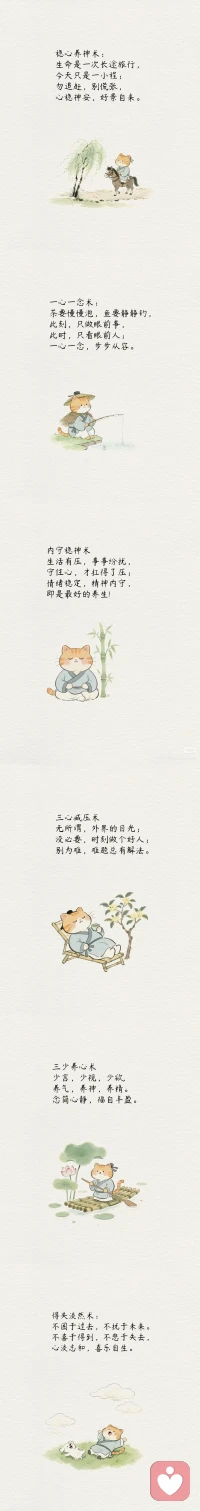 稳心养神术：
生命是一次长途旅行，
今天只是一小程；
勿追赶，别慌张，
心稳神安，好景自来。
一心一念术：
茶要慢慢泡，鱼要静静钓，
此刻，只做眼前事，
此时，只看眼前人；
一心一念，步步从容。
内守稳神术
生活有压，事事纷扰，
守住心，才扛得了压；
情绪稳定，精神内守，
即是最好的养生！
三心减压术
无所谓，外界的目光；
没必要，时刻做个好人；
别为难，难题总有解法。
三少养心术
少言，少视，少欲，
养气，养神，养精。
念简心静，福自丰盈。
得失淡然术：
不困于过去，不扰于未来。
不喜于得到，不悲于失去，
心淡志和，喜乐自生。